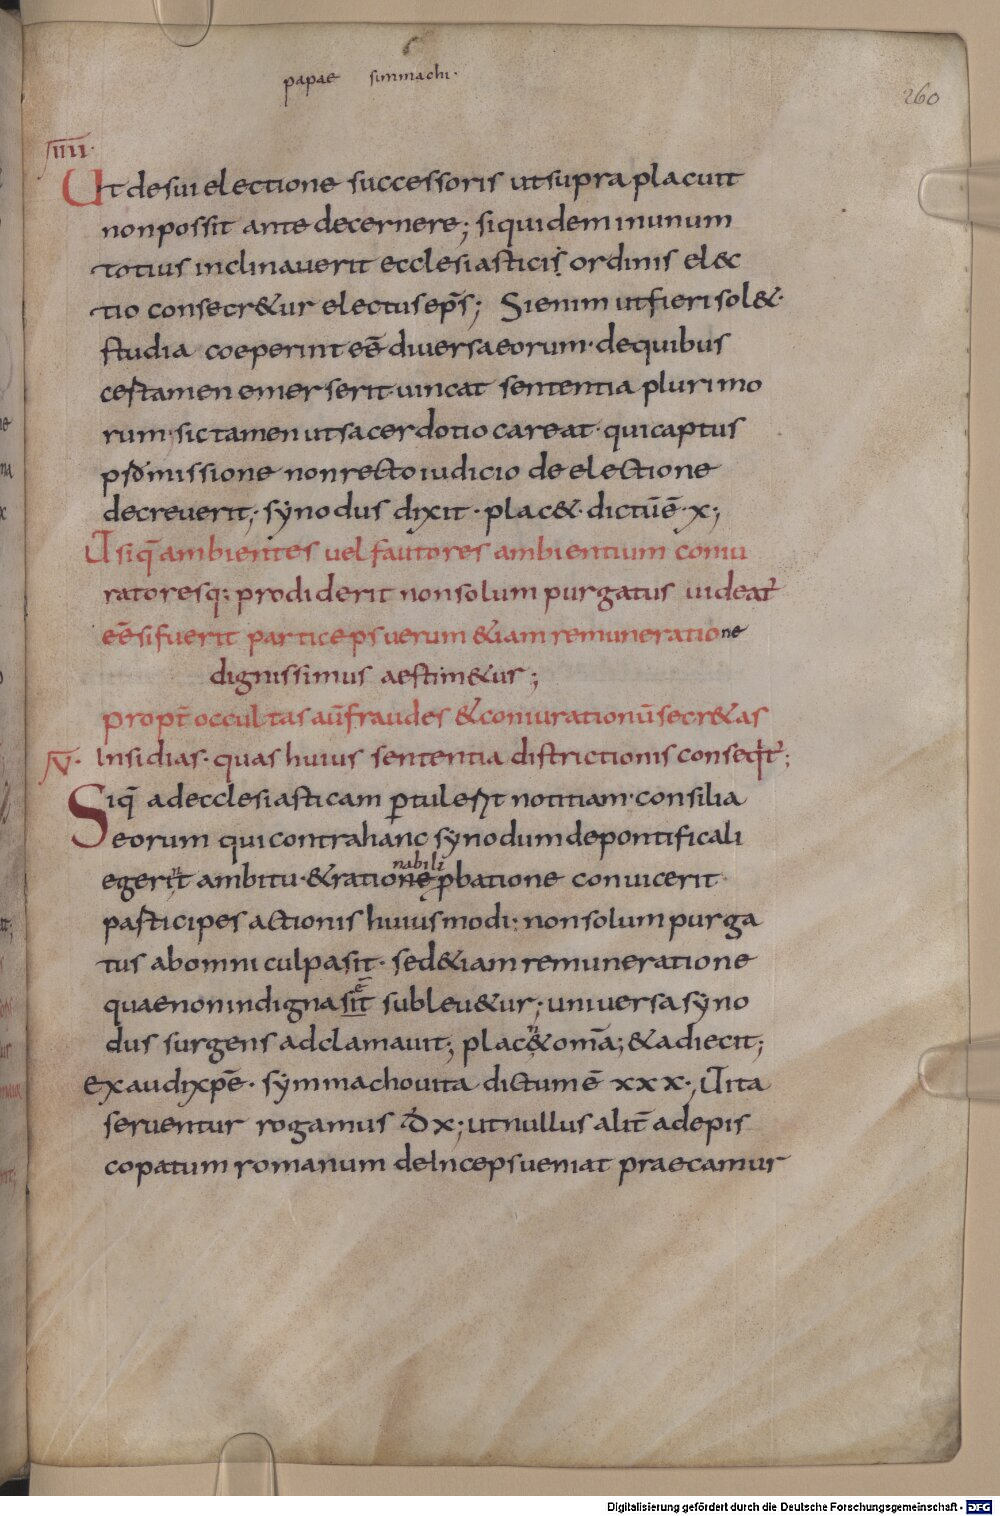 papae simmachi·
260
IIII·
Ut desui electione successoris utsupra placuit
nonpossit ante decernere; siquidem inunum
totius inclinauerit ecclesiasticis ordinis elec
tio consecr&ur electus ep̄s; Sienim utfieri sol&·
studia coeperint eē diuersa eorum· dequibus
cestamen emerserit· uincat sententia plurimo
rum· sic tamen utsacerdotio careat· quicaptus
promissione nonrecto iudicio de electione
decreuerit; synodus dixit· plac&· dictūē· x;
Ut siq̄ ambientes uel fautores ambientium coniu
ratoresq; prodiderit nonsolum purgatus uideat̄
eē sifuerit particeps uerum &iam remuneratione
dignissimus aestim&ur;
propt̄ occultas aūt fraudes &coniurationū secr&as
V· Insidias· quas huius sententia districtionis conseqt̄;
Siq̄ adecclesiasticam ꝑtulerit notitiam· consilia
eorum quicontrahanc synodum depontificali
egerint ambitu· &rationenabili ꝓbatione conuicerit
pasticipes actionis huiusmodi; nonsolum purga
tus abomni culpasit· sed&iam remuneratione
quaenonindignasit ē subleu&ur; uniuersa syno
dus surgens adclamauit; plac& om̄a; &adiecit;
exaudi xp̄e· symmacho uita dictum ē xxx; Ut ita
seruentur rogamus d̄ x; utnullus alit̄ adepis
copatum romanum deinceps ueniat praecamur
Digitalisierung gefördert durch die Deutsche Forschungsgemeinschaft - DFG